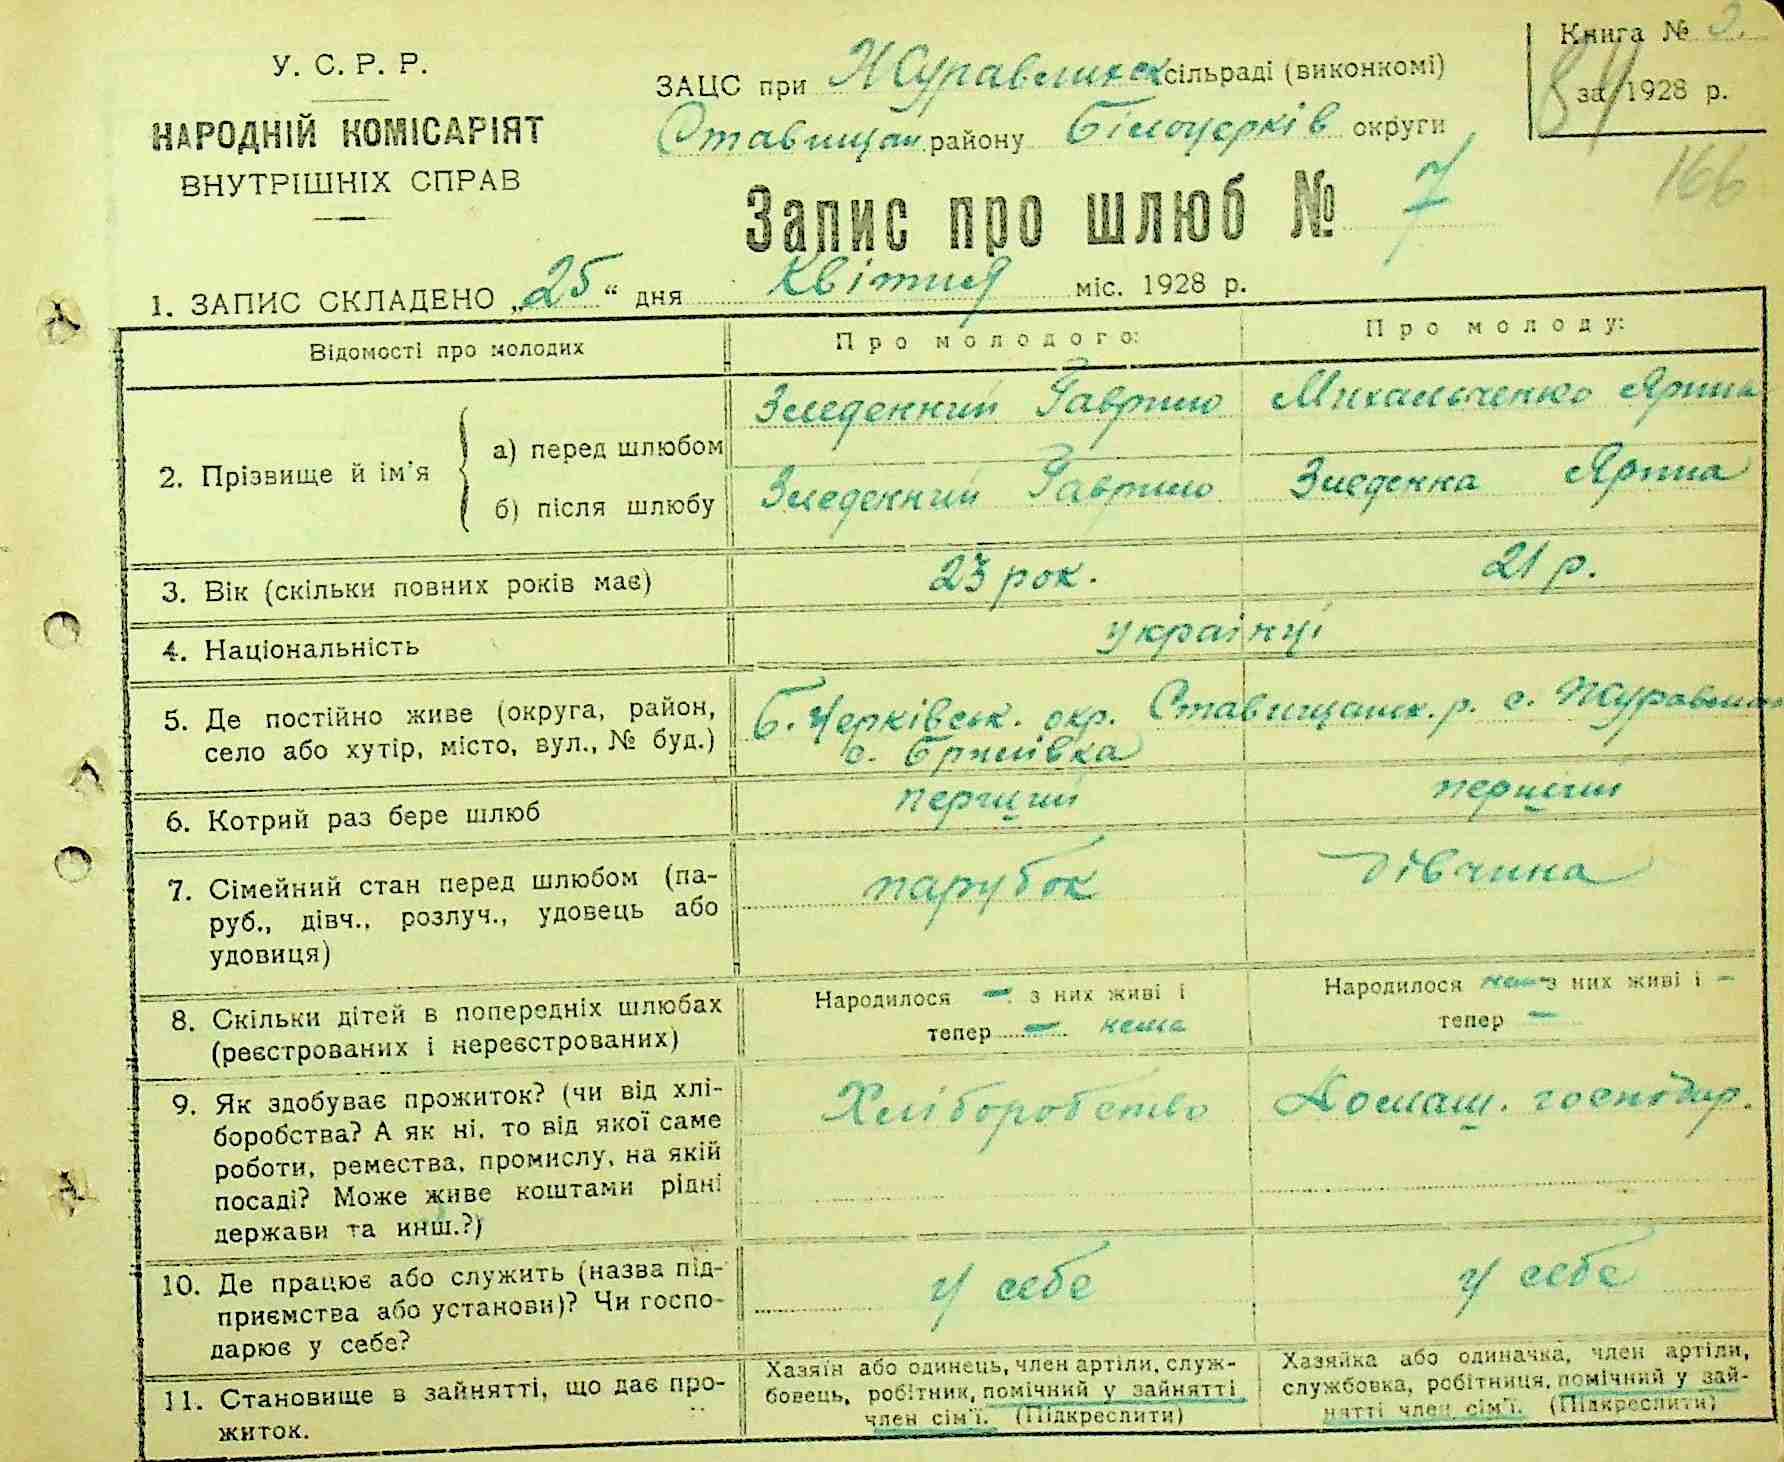 Книга №
84
за 1928 р.
166
У. С. Р. Р.
НАРОДНІЙ КОМІСАРІЯТ
ВНУТРІШНІХ СПРАВ
ЗАЦС при Журавлинск сільраді (виконкомі)
Ставищан. району Білоцерків округи
Запис про шлюб № 7
1. ЗАПИС СКЛАДЕНО „25“ дня Квітня міс. 1928 р.
Відомості про молодих
Про молодого:
Про молоду:
2. Прізвище й ім'я
а) перед шлюбом
Зледенний Гаврило
Михальченко Ярина
б) після шлюбу
Зледенний Гаврило
Зледенна Ярина
3. Вік (скільки повних років має)
23 рок.
21 р.
4. Національність
українці
5. Де постійно живе (округа, район,
село або хутір, місто, вул., № буд.)
Б. Церківськ. окр. Ставищанск. р. с.
с.
6. Котрий раз бере шлюб
перший
перший
7. Сімейний стан перед шлюбом (па-
руб., дівч., розлуч., удовець або
удовиця)
парубок
дівчина
8. Скільки дітей в попередніх шлюбах
(реєстрованих і нереєстрованих)
Народилося – з них живі і
тепер – нема
Народилося нема з них живі і –
тепер –
9. Як здобуває прожиток? (чи від хлі-
боробства? А як ні, то від якої саме
роботи, ремества, промислу, на якій
посаді? Може живе коштами рідні
держави та инш.?)
Хліборобство
Домаш. господар.
10. Де працює або служить (назва під-
приємства або установи)? Чи госпо-
дарює у себе?
у себе
у себе
11. Становище в зайнятті, що дає про-
житок.
Хазяїн або одинець, член артіли, служ-
бовець, робітник, помічний у зайнятті
член сім'ї. (Підкреслити)
Хазяйка або одиначка, член артіли,
службовка, робітниця, помічний у зай-
нятті член сім'ї. (Підкреслити)